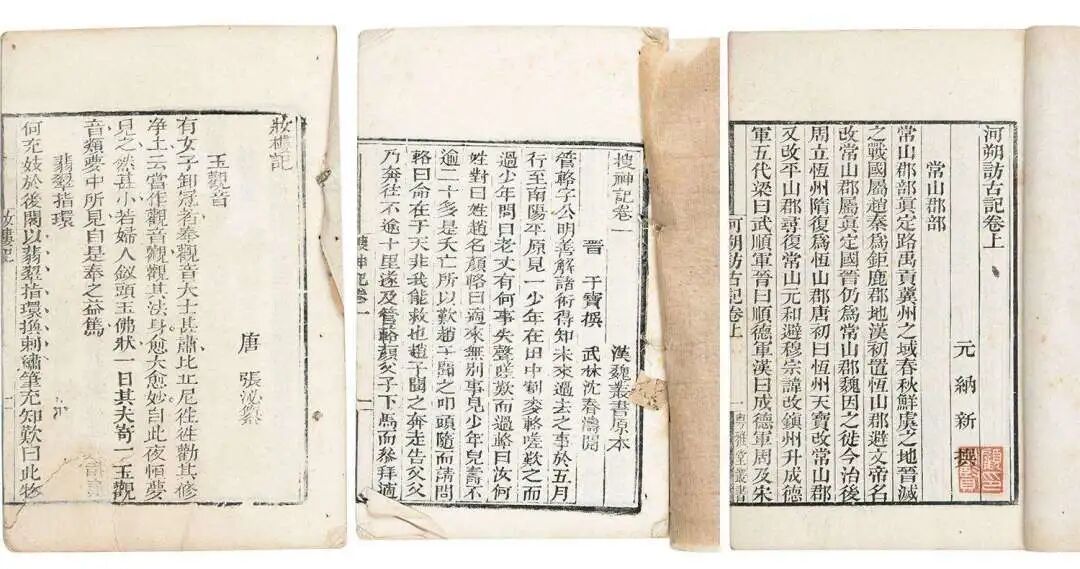 妝樓記
唐 張泌纂
玉觀音
有女子卸冠者奉觀音大士甚肅比丘尼徃徃勸其修
淨土云當作觀音觀觀其法身愈大愈妙自此夜恆夢
見之然甚小若婦人釵頭玉佛狀一日其夫寄一玉觀
音類夢中所見自是奉之益篤
翡翠指環
何充妓於後閣以翡翠指環換刺繡筆充知歎曰此物
妝樓記
一
搜神記卷一
漢魏叢書原本
晉 于寶撰 武林沈春濤閱
管輅字公明善解諸術得知未來過去之事於五月
行至南陽平原見一少年在田中割麥輅嗟歎之而
過少年問曰老丈有何事失聲嗟歎而過輅曰汝何
姓對曰姓趙名顏輅曰適來無別事見少年兒壽不
逾二十多是夭亡所以歎趙子聞之叩頭隨而請問
輅曰命在于天非我能救也趙子聞之奔走告父父
乃奔往不逾十里遂及管輅顏父子下馬而參拜適
搜神記卷一
一
河朔訪古記卷上
元 納新 撰
常山郡部
常山郡部真定路禹貢冀州之域春秋鮮虞之地晉滅
之戰國屬趙秦為鉅鹿郡地漢初置恆山郡避文帝名
改常山郡屬真定國晉仍為常山郡魏因之徙今治後
周立恆州隋復為恆山郡唐初曰恆州天寶改常山郡
又改平山郡尋復常山元和避穆宗諱改鎮州升成德
軍五代梁曰武順軍晉曰順德軍漢曰成德軍周及宋
河朔訪古記卷上
一
粵雅堂叢書